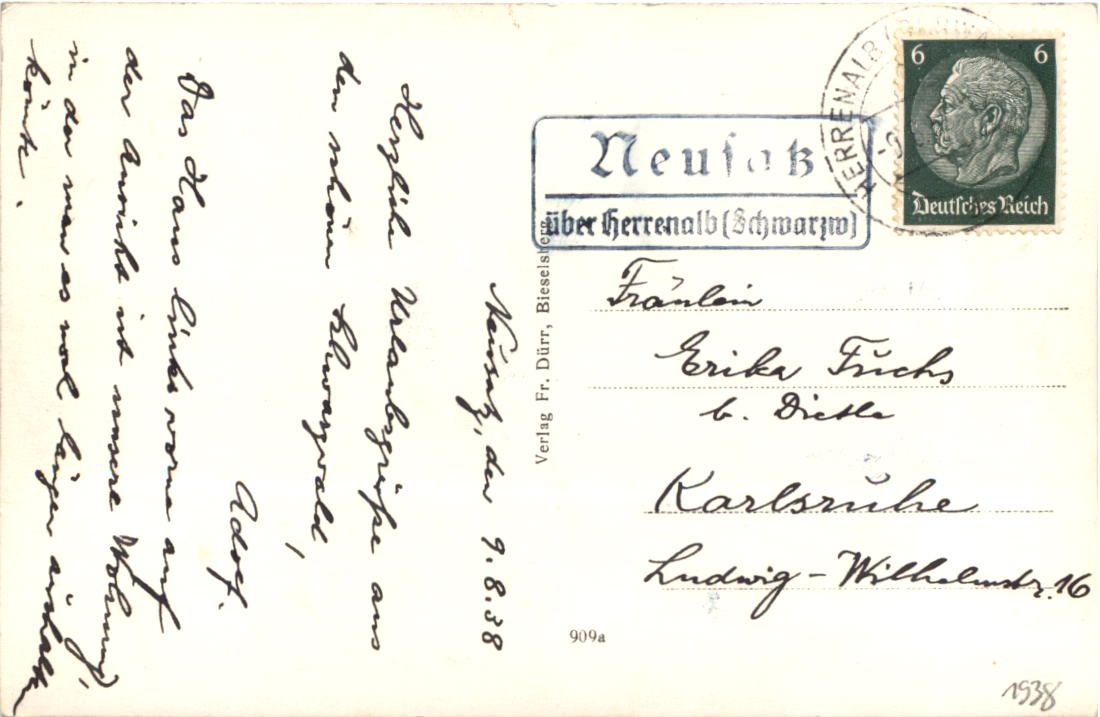 Neusatz, den 9.8.38
Herzliche Urlaubsgrüße aus
dem schönen Schwarzwald,
Adolf.
Das Haus links vorne auf
der Ansicht ist unsere Wohnung,
in der man es wol länger aushalten
könnte.
Verlag Fr. Dürr, Bieselsberg
909a
HERRENALB
6 6
Deutsches Reich
Neusatz
über Herrenalb (Schwarzw)
Fräulein
Erika Fuchs
b. Dietle
Karlsruhe
Ludwig-Wilhelmstr. 16
1938